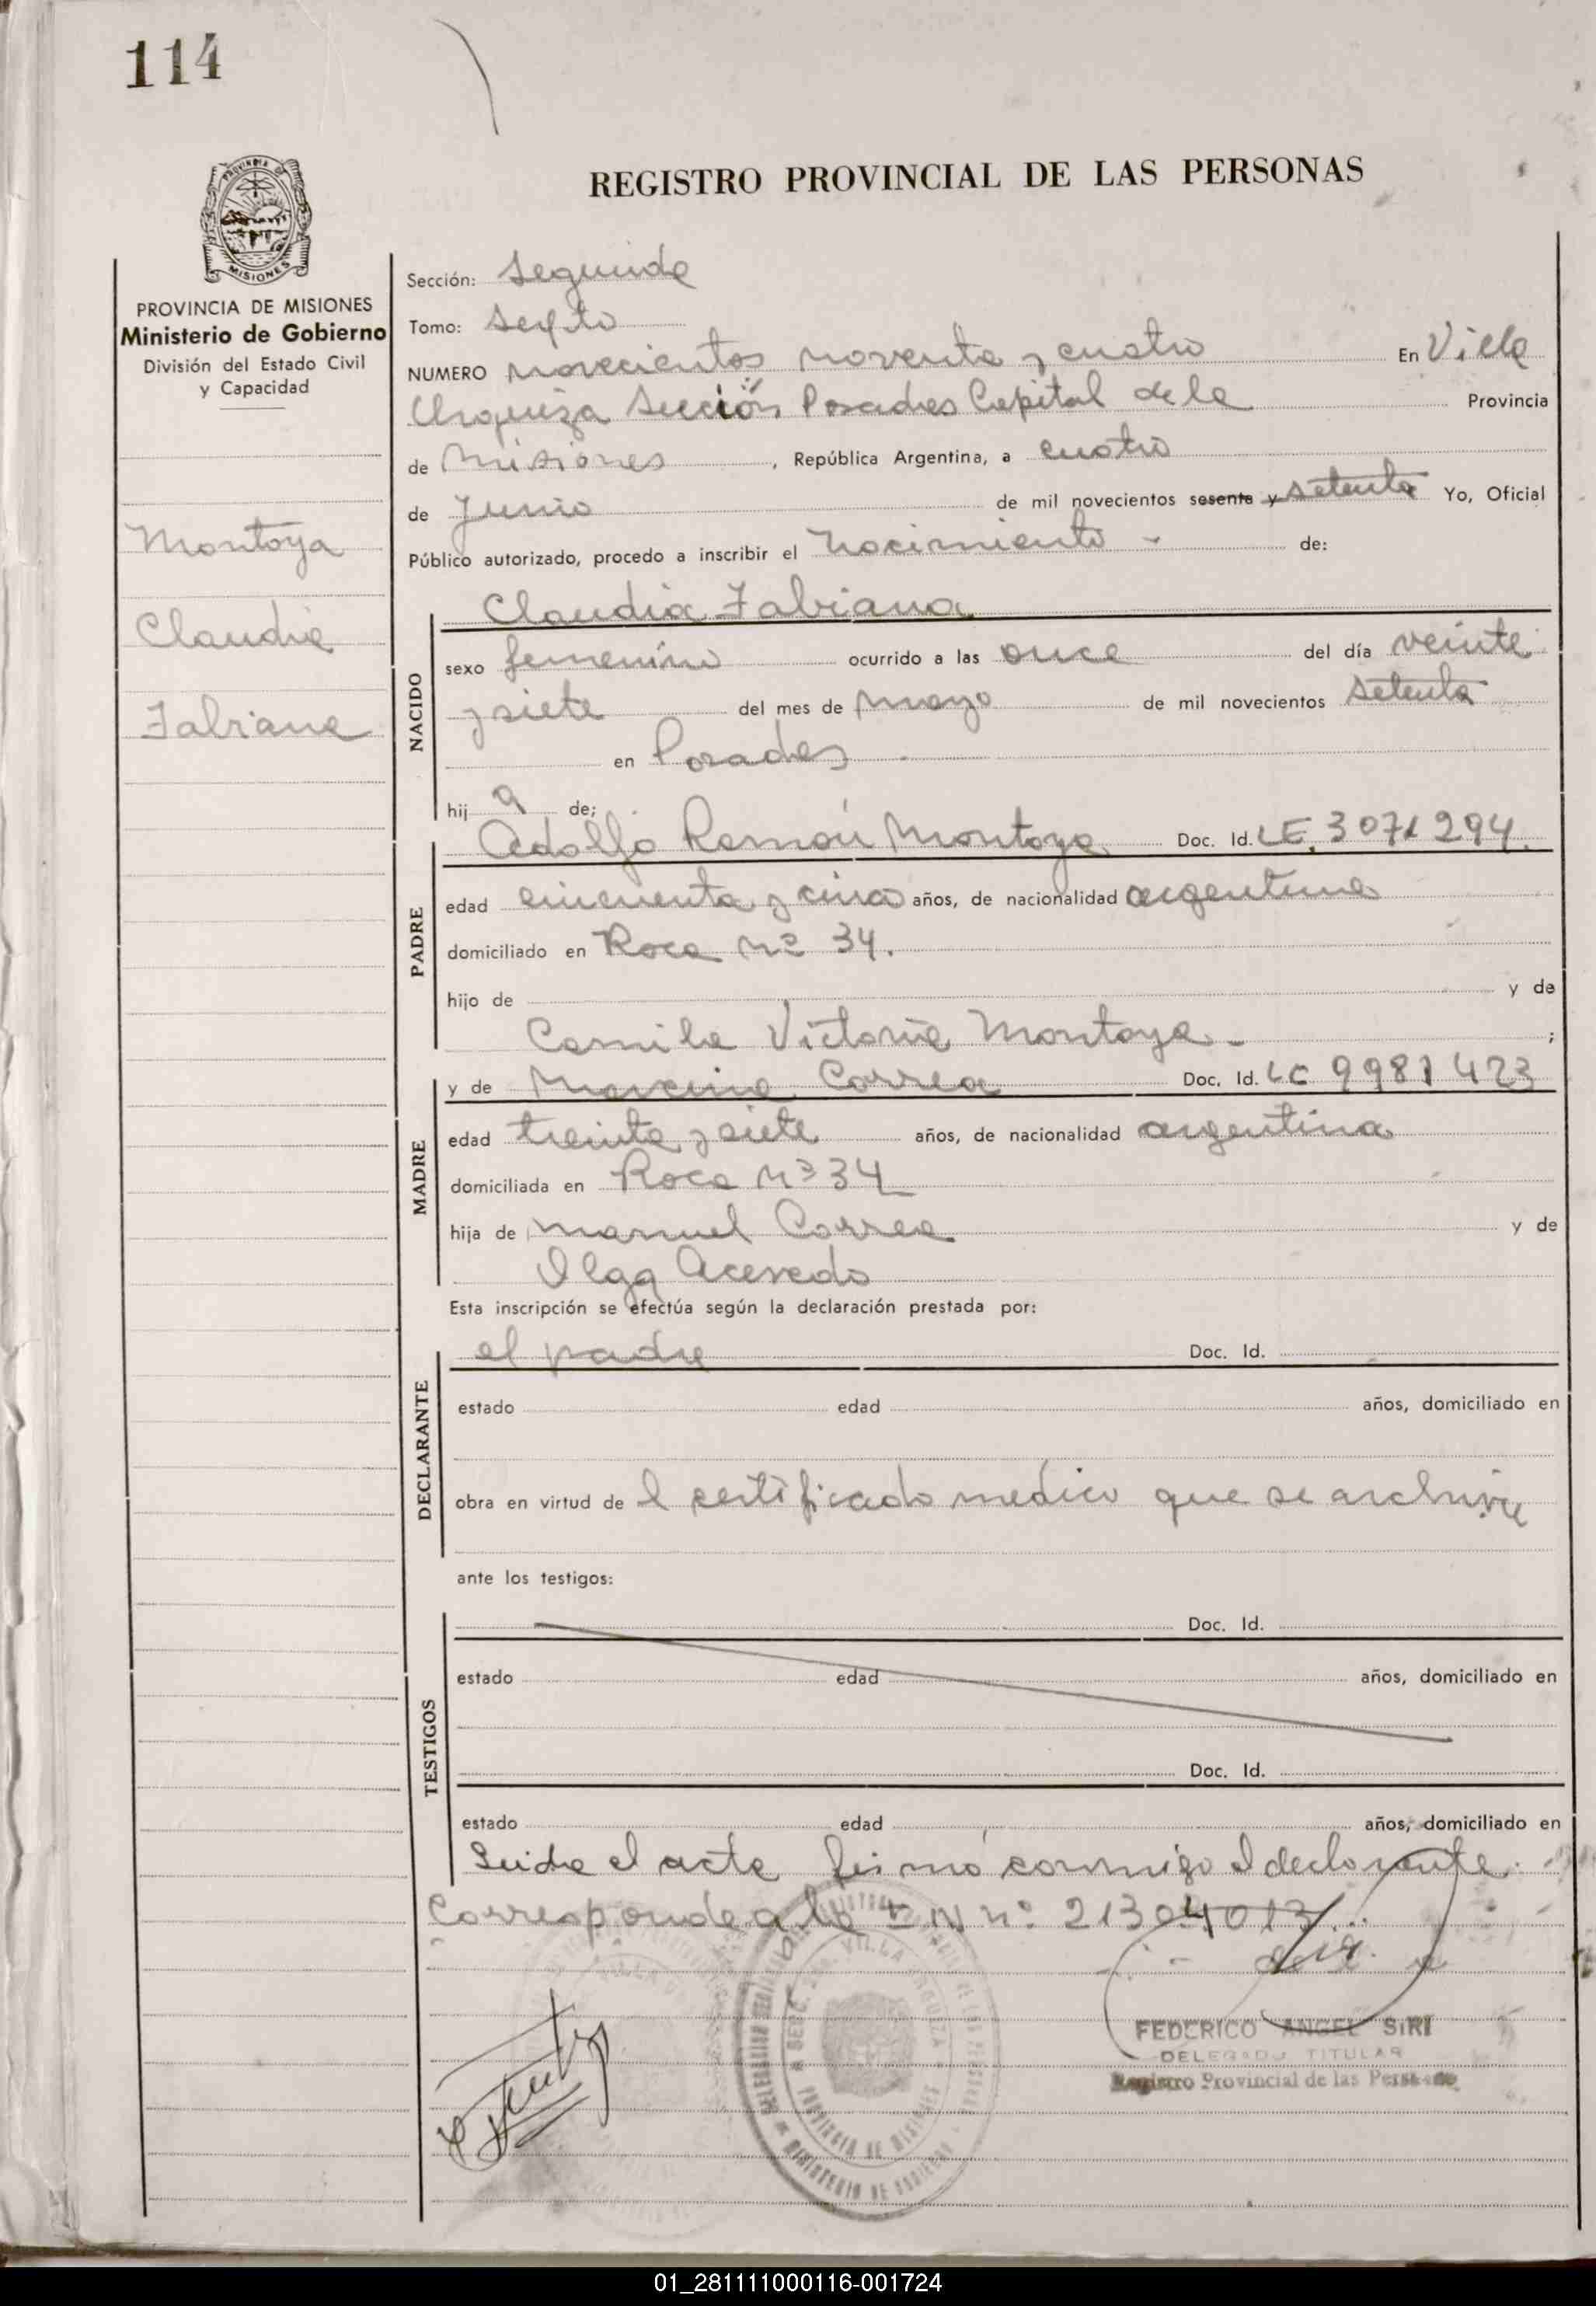 114
REGISTRO PROVINCIAL DE LAS PERSONAS
PROVINCIA
MISIONES
PROVINCIA DE MISIONES
Ministerio de Gobierno
División del Estado Civil
y Capacidad
Montoya
Claudia
Fabiana
Sección: Segunda
Tomo: Sexto
NUMERO novecientos noventa y cuatro En Villa
Urquiza Sección Posadas Capital de la Provincia
de Misiones, República Argentina, a cuatro
de Junio de mil novecientos sesenta y setenta Yo, Oficial
Público autorizado, procedo a inscribir el nacimiento - de:
NACIDO
Claudia Fabiana
sexo femenino ocurrido a las once del día veinte
y siete del mes de mayo de mil novecientos setenta
en Posadas
hij a de;
PADRE
Adolfo Ramón Montoya Doc. Id. LE. 3071294.
edad cincuenta y cinco años, de nacionalidad argentina
domiciliado en Roca Nº 34.
hijo de y de
Camila Victoria Montoya - ;
MADRE
y de Correa Doc. Id. LC 9981423
edad treinta y siete años, de nacionalidad argentina
domiciliada en Roca Nº 34
hija de Manuel Correa y de
Olga Acevedo
Esta inscripción se efectúa según la declaración prestada por:
DECLARANTE
el padre Doc. Id.
estado edad años, domiciliado en
obra en virtud de l certificado medico que se archiva
ante los testigos:
TESTIGOS
Doc. Id.
estado edad años, domiciliado en
Doc. Id.
estado edad años, domiciliado en
Leida el acta firmó conmigo el declarante.
Corresponde a la nº 21304013
SECC. VILLA URQUIZA
PROVINCIA DE MISIONES
MINISTERIO DE GOBIERNO
FEDERICO ANGEL SIRI
DELEGADO TITULAR
Registro Provincial de las Personas
01_281111000116-001724